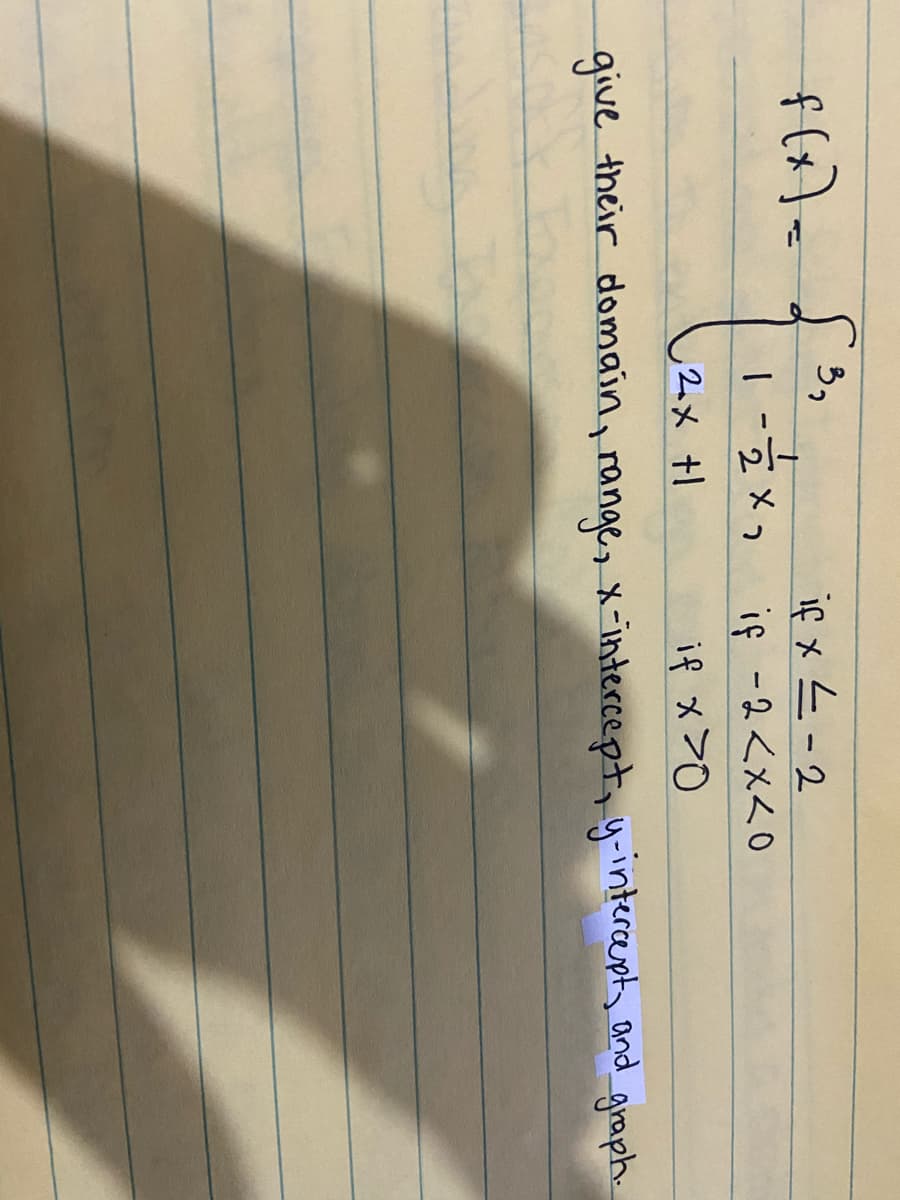 f(x) = { 3, if x ≤ -2
1 - 1/2 x, if -2<x<0
2x +1 if x >0
give their domain, range, x-intercept, y-intercept, and graph.